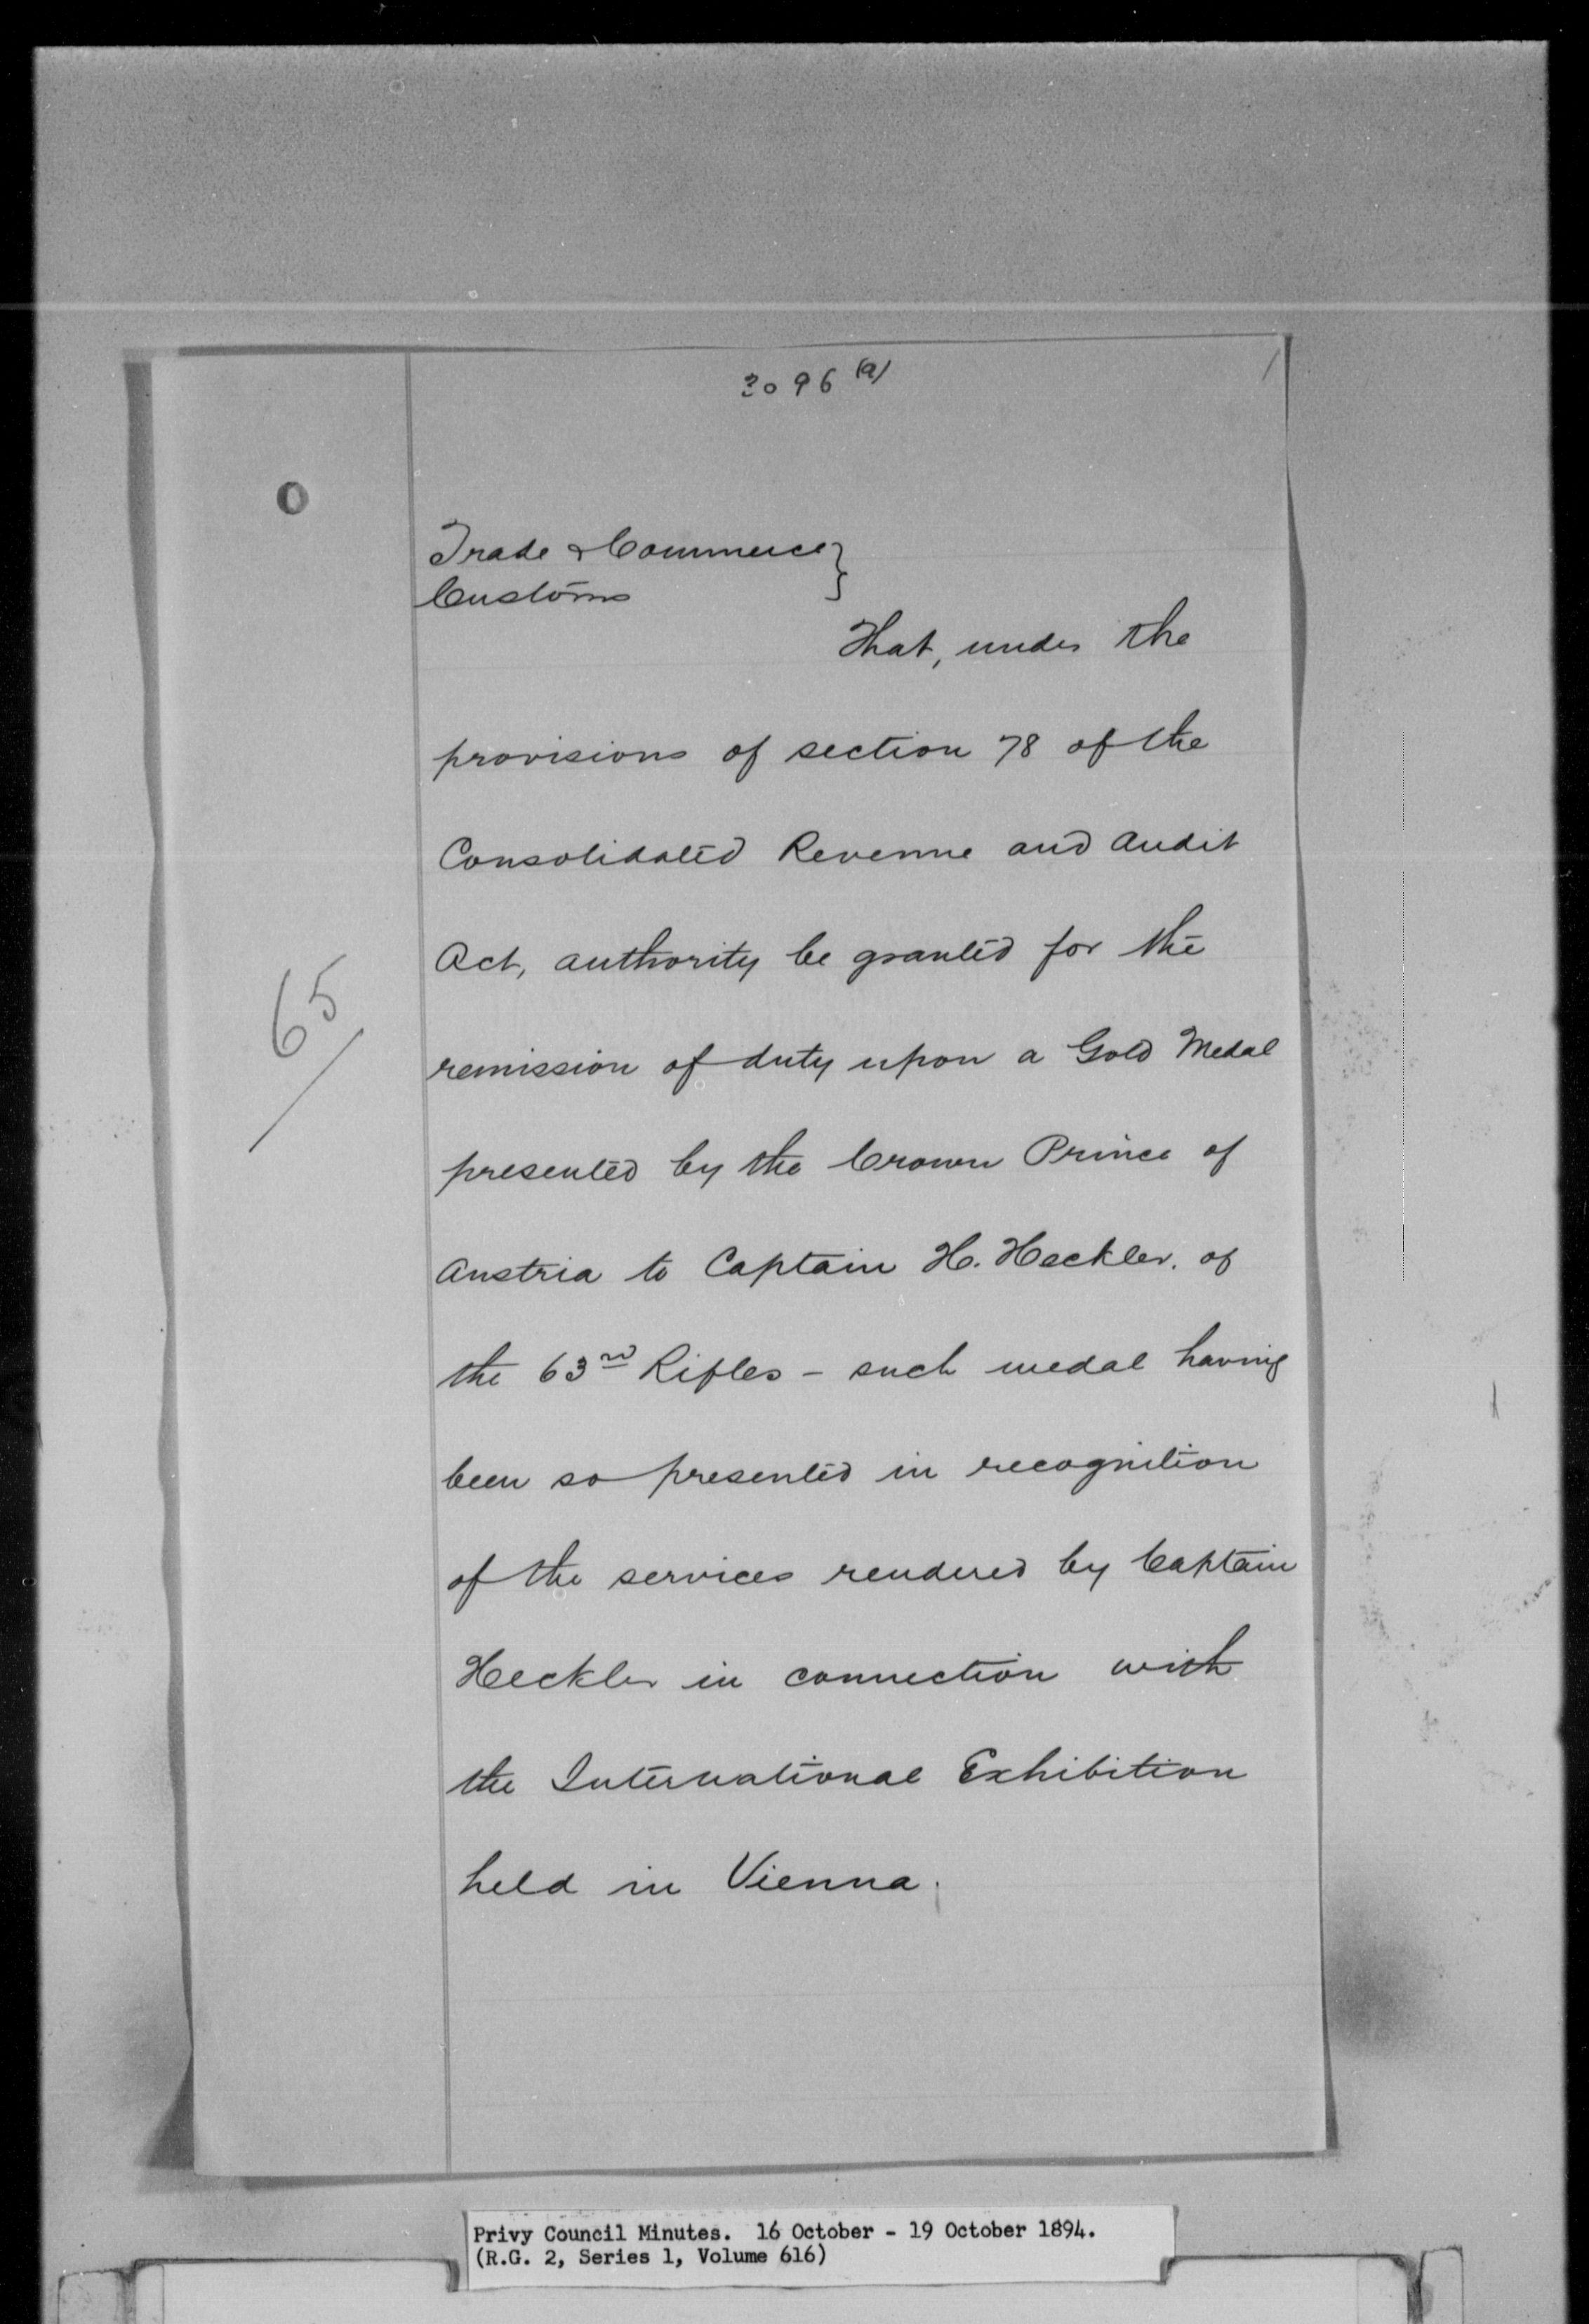 3096 (a)
Trade & Commerce }
Customs
That, under the
provisions of section 78 of the
Consolidated Revenue and Audit
Act, authority be granted for the
65
remission of duty upon a Gold Medal
presented by the Crown Prince of
Austria to Captain H. Heckler, of
the 63rd Rifles - such medal having
been so presented in recognition
of the services rendered by Captain
Heckler in connection with
the International Exhibition
held in Vienna.
Privy Council Minutes. 16 October - 19 October 1894.
(R.G. 2, Series 1, Volume 616)